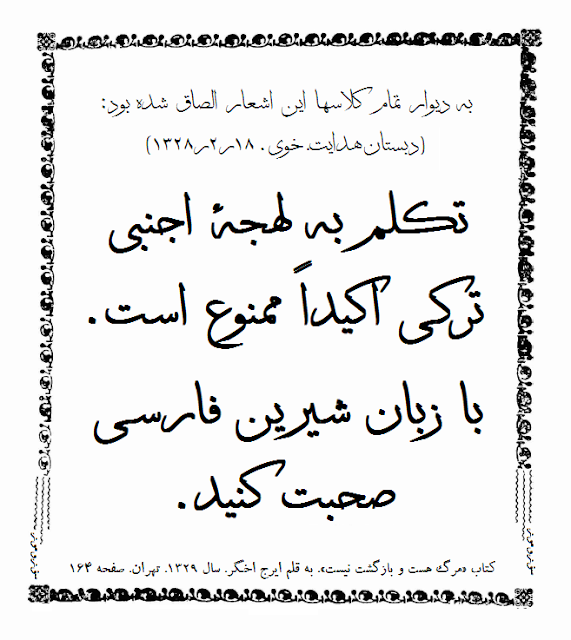 به دیوار تمام کلاسها این اشعار الصاق شده بود:
(دبستان هدایت خوی. ۱۸ر۲ر۱۳۲۸)
تکلم به لهجهٔ اجنبی
ترکی اکیداً ممنوع است.
با زبان شیرین فارسی
صحبت کنید.
کتاب «مرگ هست و بازگشت نیست». به قلم ایرج اخگر. سال ۱۳۲۹. تهران. صفحه ۱۶۴